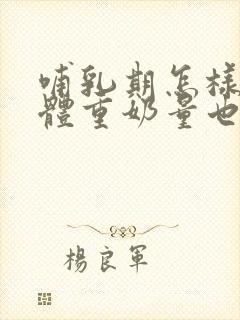 哺乳期怎樣
體重奶量也
楊良軍